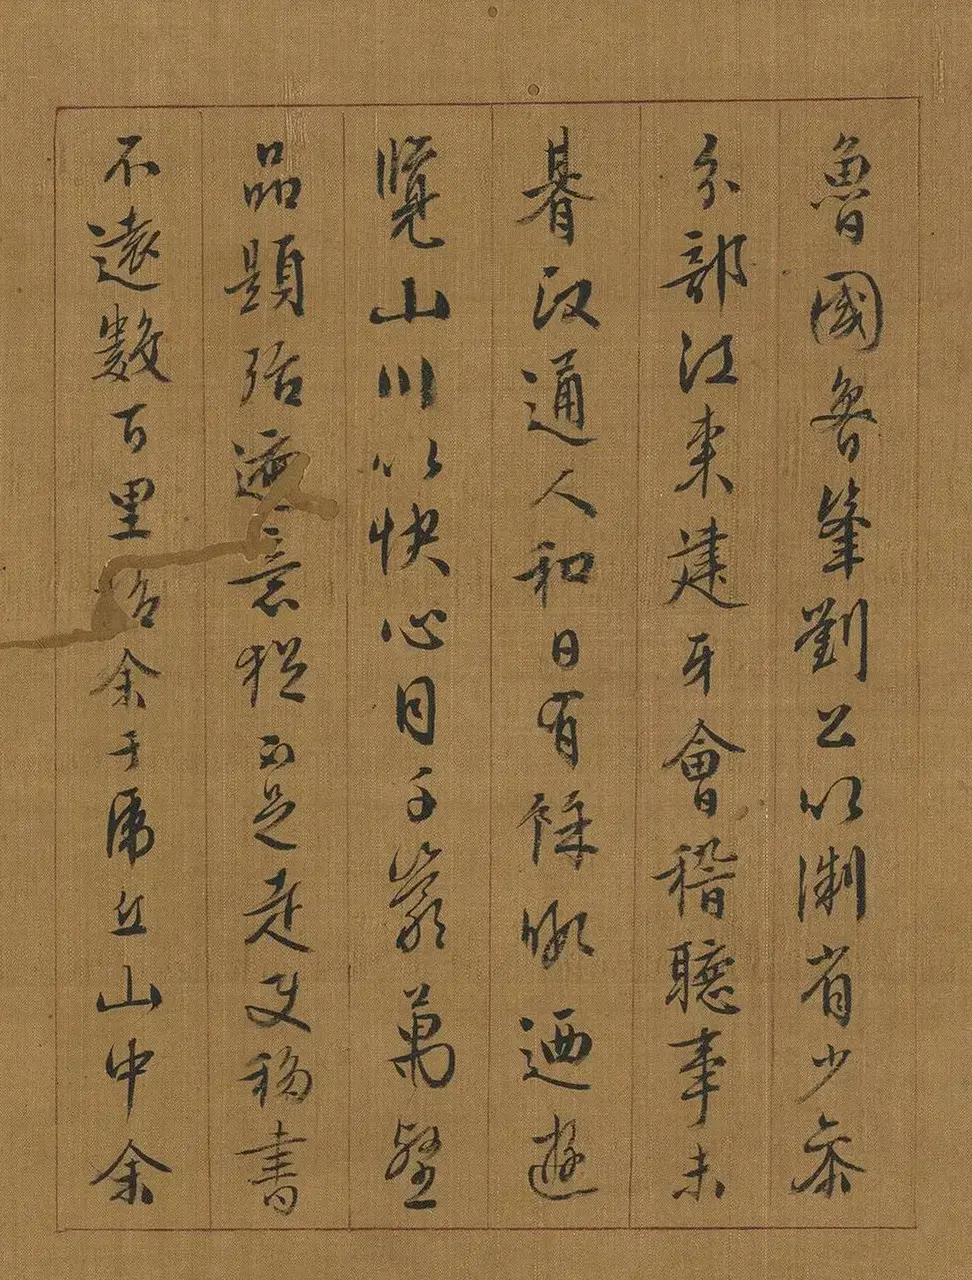 魯國魯肇劉公以淛省少叅
分部江東建牙會稽聽事未
朞政通人和日有餘暇迺遊
覽山川以快心目千巖萬壑
品題殆遍意猶不足走使移書
不遠數百里招余于虎丘山中余